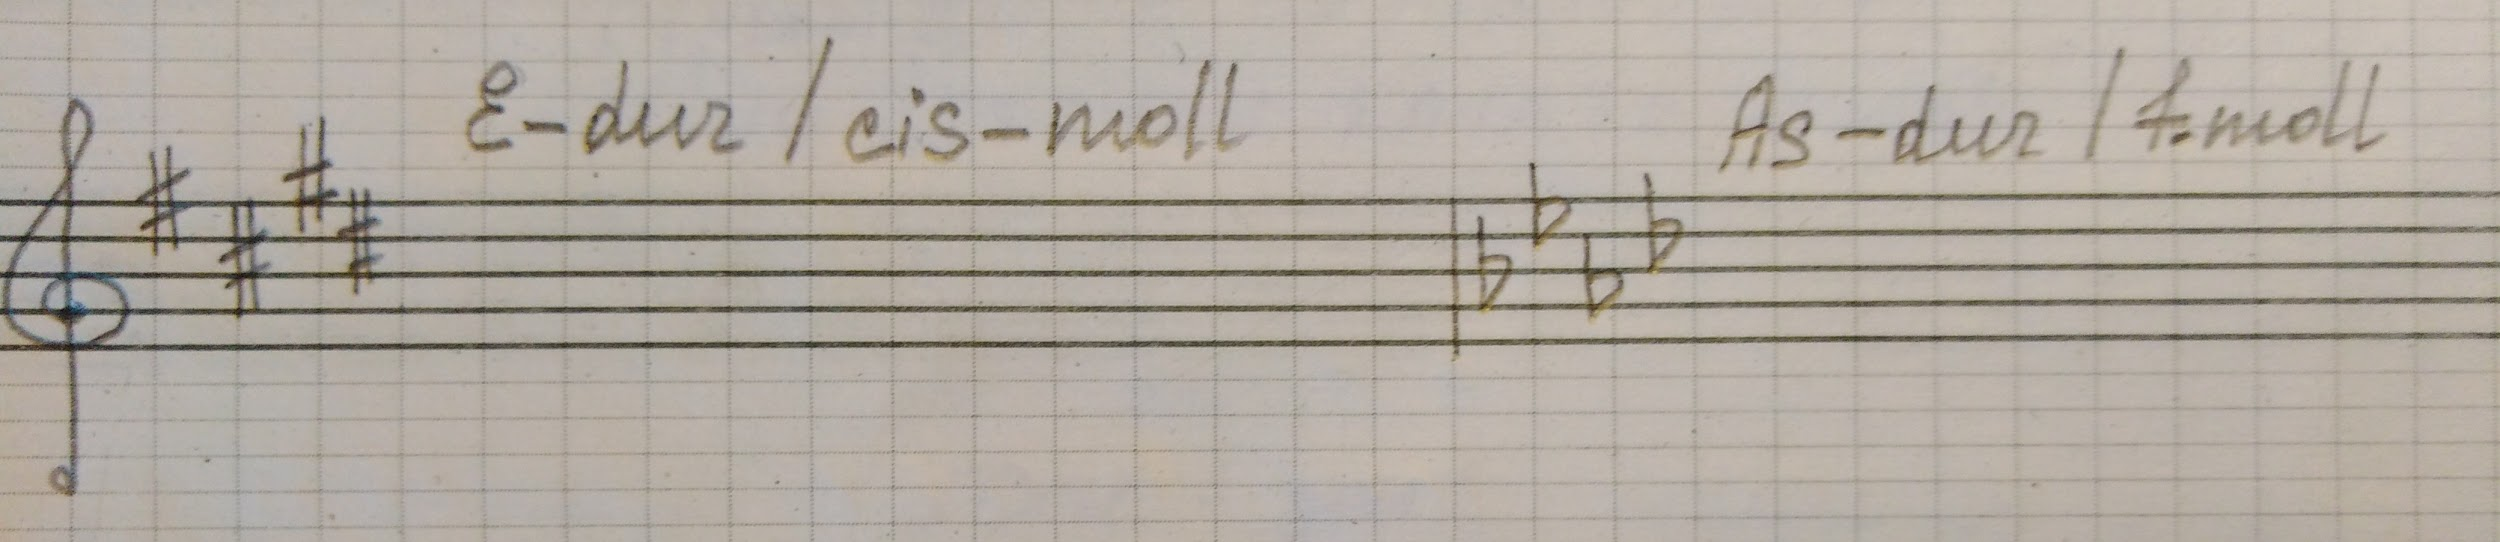 E-dur / cis-moll As-dur / f-moll